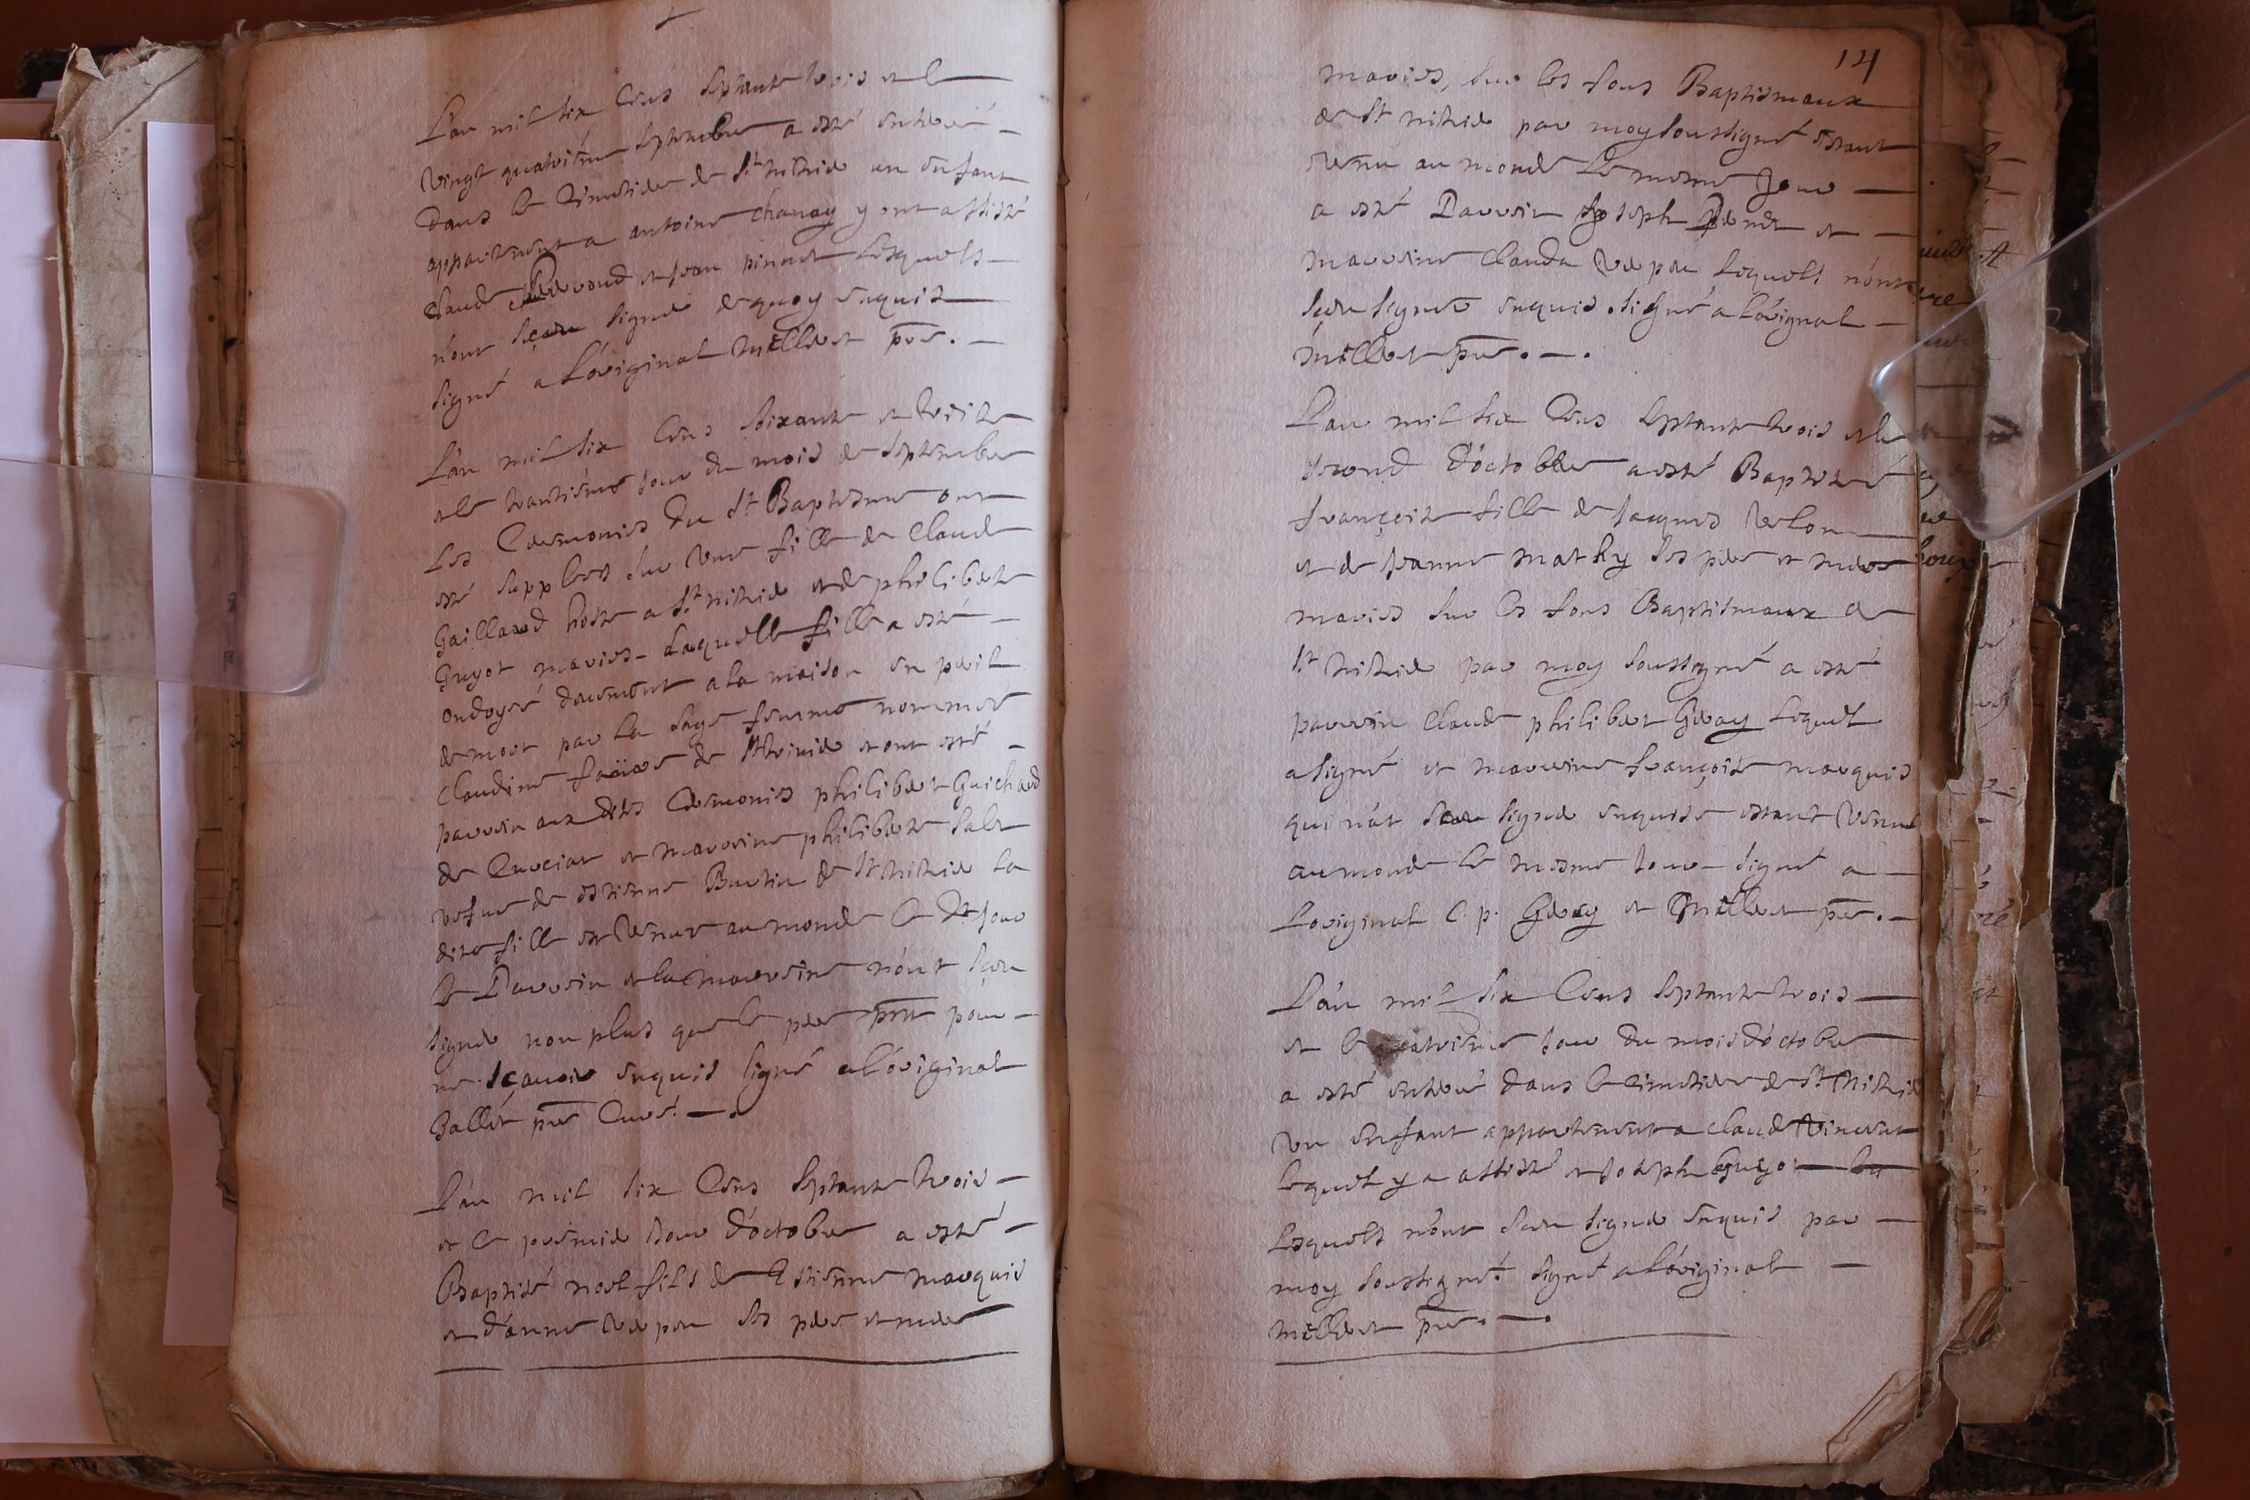 L'an mil six Cens septante trois et le
vingt quatriéme septembre a esté enterré
dans le Cimetiere de St nithier un enfant
appartenent a antoine chanay y ont assisté
claude et Jean pinnet Lesquels
n'ont sceu signer de quoy enquis
signé a L'original Millet pre.
L'an mil six Cens soixante et treize
et le trantiéme jour du mois de septembre
Les Ceremonies du St Baptesme ont
esté supplees sur une fille de Claude
Gaillard hoste a St nithier et de philiberte
Guyot maries Laquelle fille a esté
ondoyée deuement a la maison en peril
de mort par la sage femme nommée
claudine de St et ont esté
parrein aux dites Ceremonies philibert Guichard
de Cuuciat et marreine philiberte
vefue de estienne Burtin de St nithier La
dite fille est venue au monde le dt jour
le Parrein et la marreine n'ont sceu
signer non plus que le pere pnt pour
ne scauoir enquis signé a l'original
Ballet pre Curé.
L'an mil six Cens septante trois
et le premier jour d'octobre a esté
Baptisé noel fils de Estienne marquis
et d'anne ses pere et mere
14
maries, sur les fons Baptismaux
de St nithier par moy soussigné estant
venu au monde Le mesme Jour
a esté Parrein Joseph et
marreine Clauda Lequels n'ont
sceu signer enquis. signé a L'óriginal
Millet pre.
L'an mil six Cens septante trois et le
second d'octobre a esté Baptizée
françoise fille de Jacques
et de Jeanne mathy ses pere et mere
maries sur les fons Baptismaux de
St nithier par moy soussigné a esté
parrein Claude philibert Gray Lequel
a signé et marreine françoise marquis
qui n'at sceu signer enquise estant venue
au monde le mesme jour signé a
Loriginal C. p. Gray et Millet pre.
L'an mil six Cens septante trois
et le quatriéme jour du mois d'octobre
a esté enterré dans le Cimetiere de St Nithier
un enfant appartenent a claude Vincent
lequel y a assisté et Joseph Guyot
Lesquels n'ont sceu signer enquis par
moy soussigné signé a L'óriginal
Millet pre.